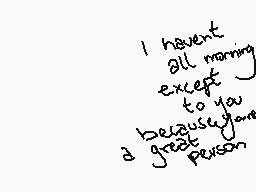 I havent
all morning
except
to you
because you are
a great
person